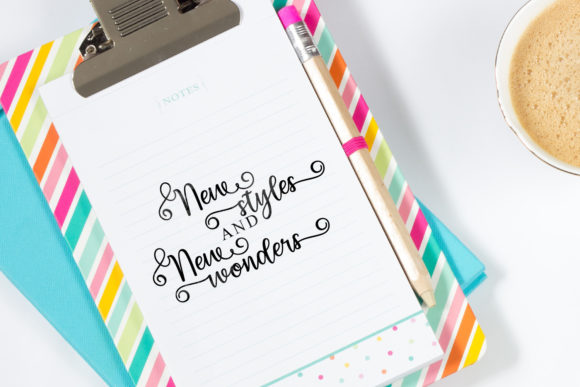 NOTES
New
styles
AND
New
wonders